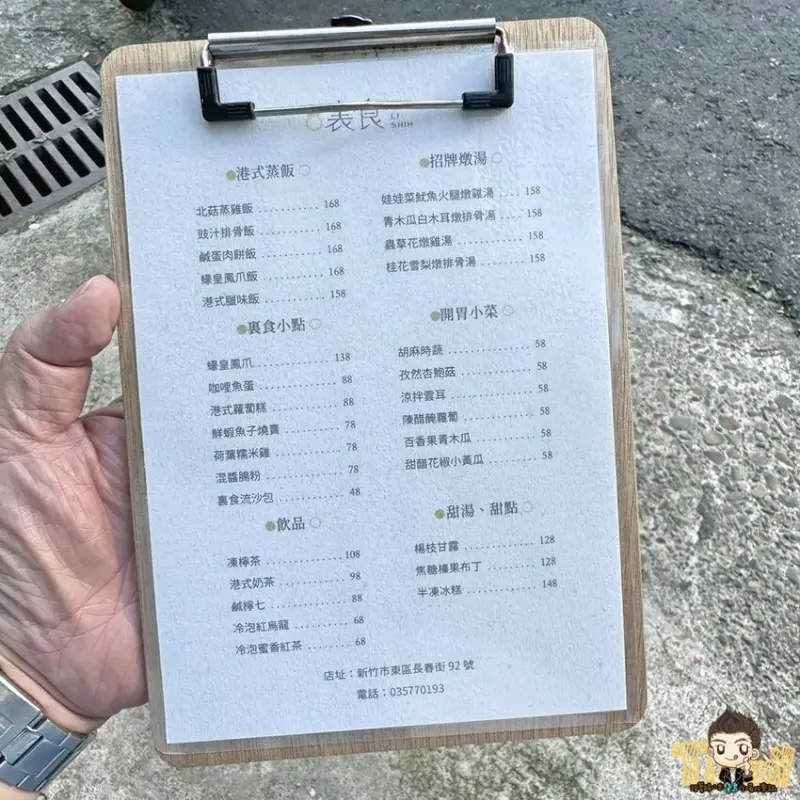 裏食
SHIH
港式蒸飯
北菇蒸雞飯 168
豉汁排骨飯 168
鹹蛋肉餅飯 168
蠔皇鳳爪飯 168
港式臘味飯 158
裏食小點
蠔皇鳳爪 138
咖哩魚蛋 88
港式蘿蔔糕 88
鮮蝦魚子燒賣 78
荷葉糯米雞 78
混醬腸粉 78
裏食流沙包 48
飲品
凍檸茶 108
港式奶茶 98
鹹檸七 88
冷泡紅烏龍 68
冷泡蜜香紅茶 68
招牌燉湯
娃娃菜魷魚火腿燉雞湯 158
青木瓜白木耳燉排骨湯 158
蟲草花燉雞湯 158
桂花雪梨燉排骨湯 158
開胃小菜
胡麻時蔬 58
孜然杏鮑菇 58
涼拌雲耳 58
陳醋醃蘿蔔 58
百香果青木瓜 58
甜醋花椒小黃瓜 58
甜湯、甜點
楊枝甘露 128
焦糖榛果布丁 128
半凍冰糕 148
店址：新竹市東區長春街 92 號
電話：035770193